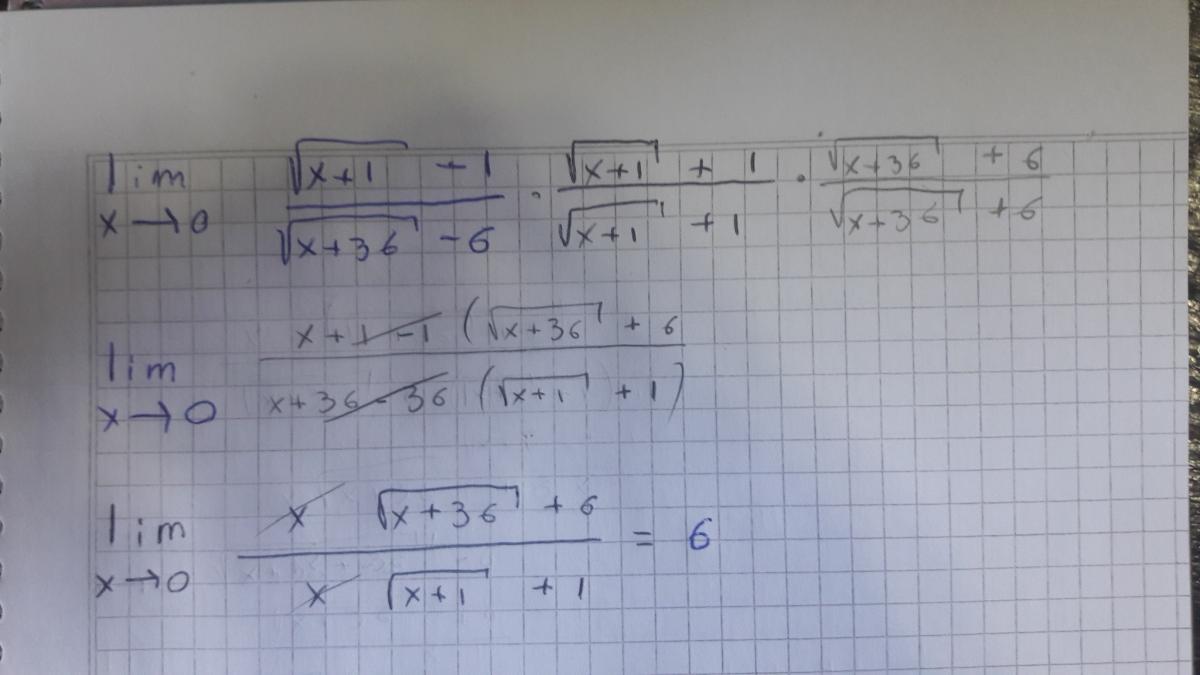 lim x→0 (√(x+1) + 1)/(√(x+36) - 6) · (√(x+1) + 1)/(√(x+1) + 1) · (√(x+36) + 6)/(√(x+36) + 6)
lim x→0 (x+1-1 (√(x+36) + 6)/(x+36-36 (√(x+1) + 1))
lim x→0 (x √(x+36) + 6)/(x √(x+1) + 1) = 6